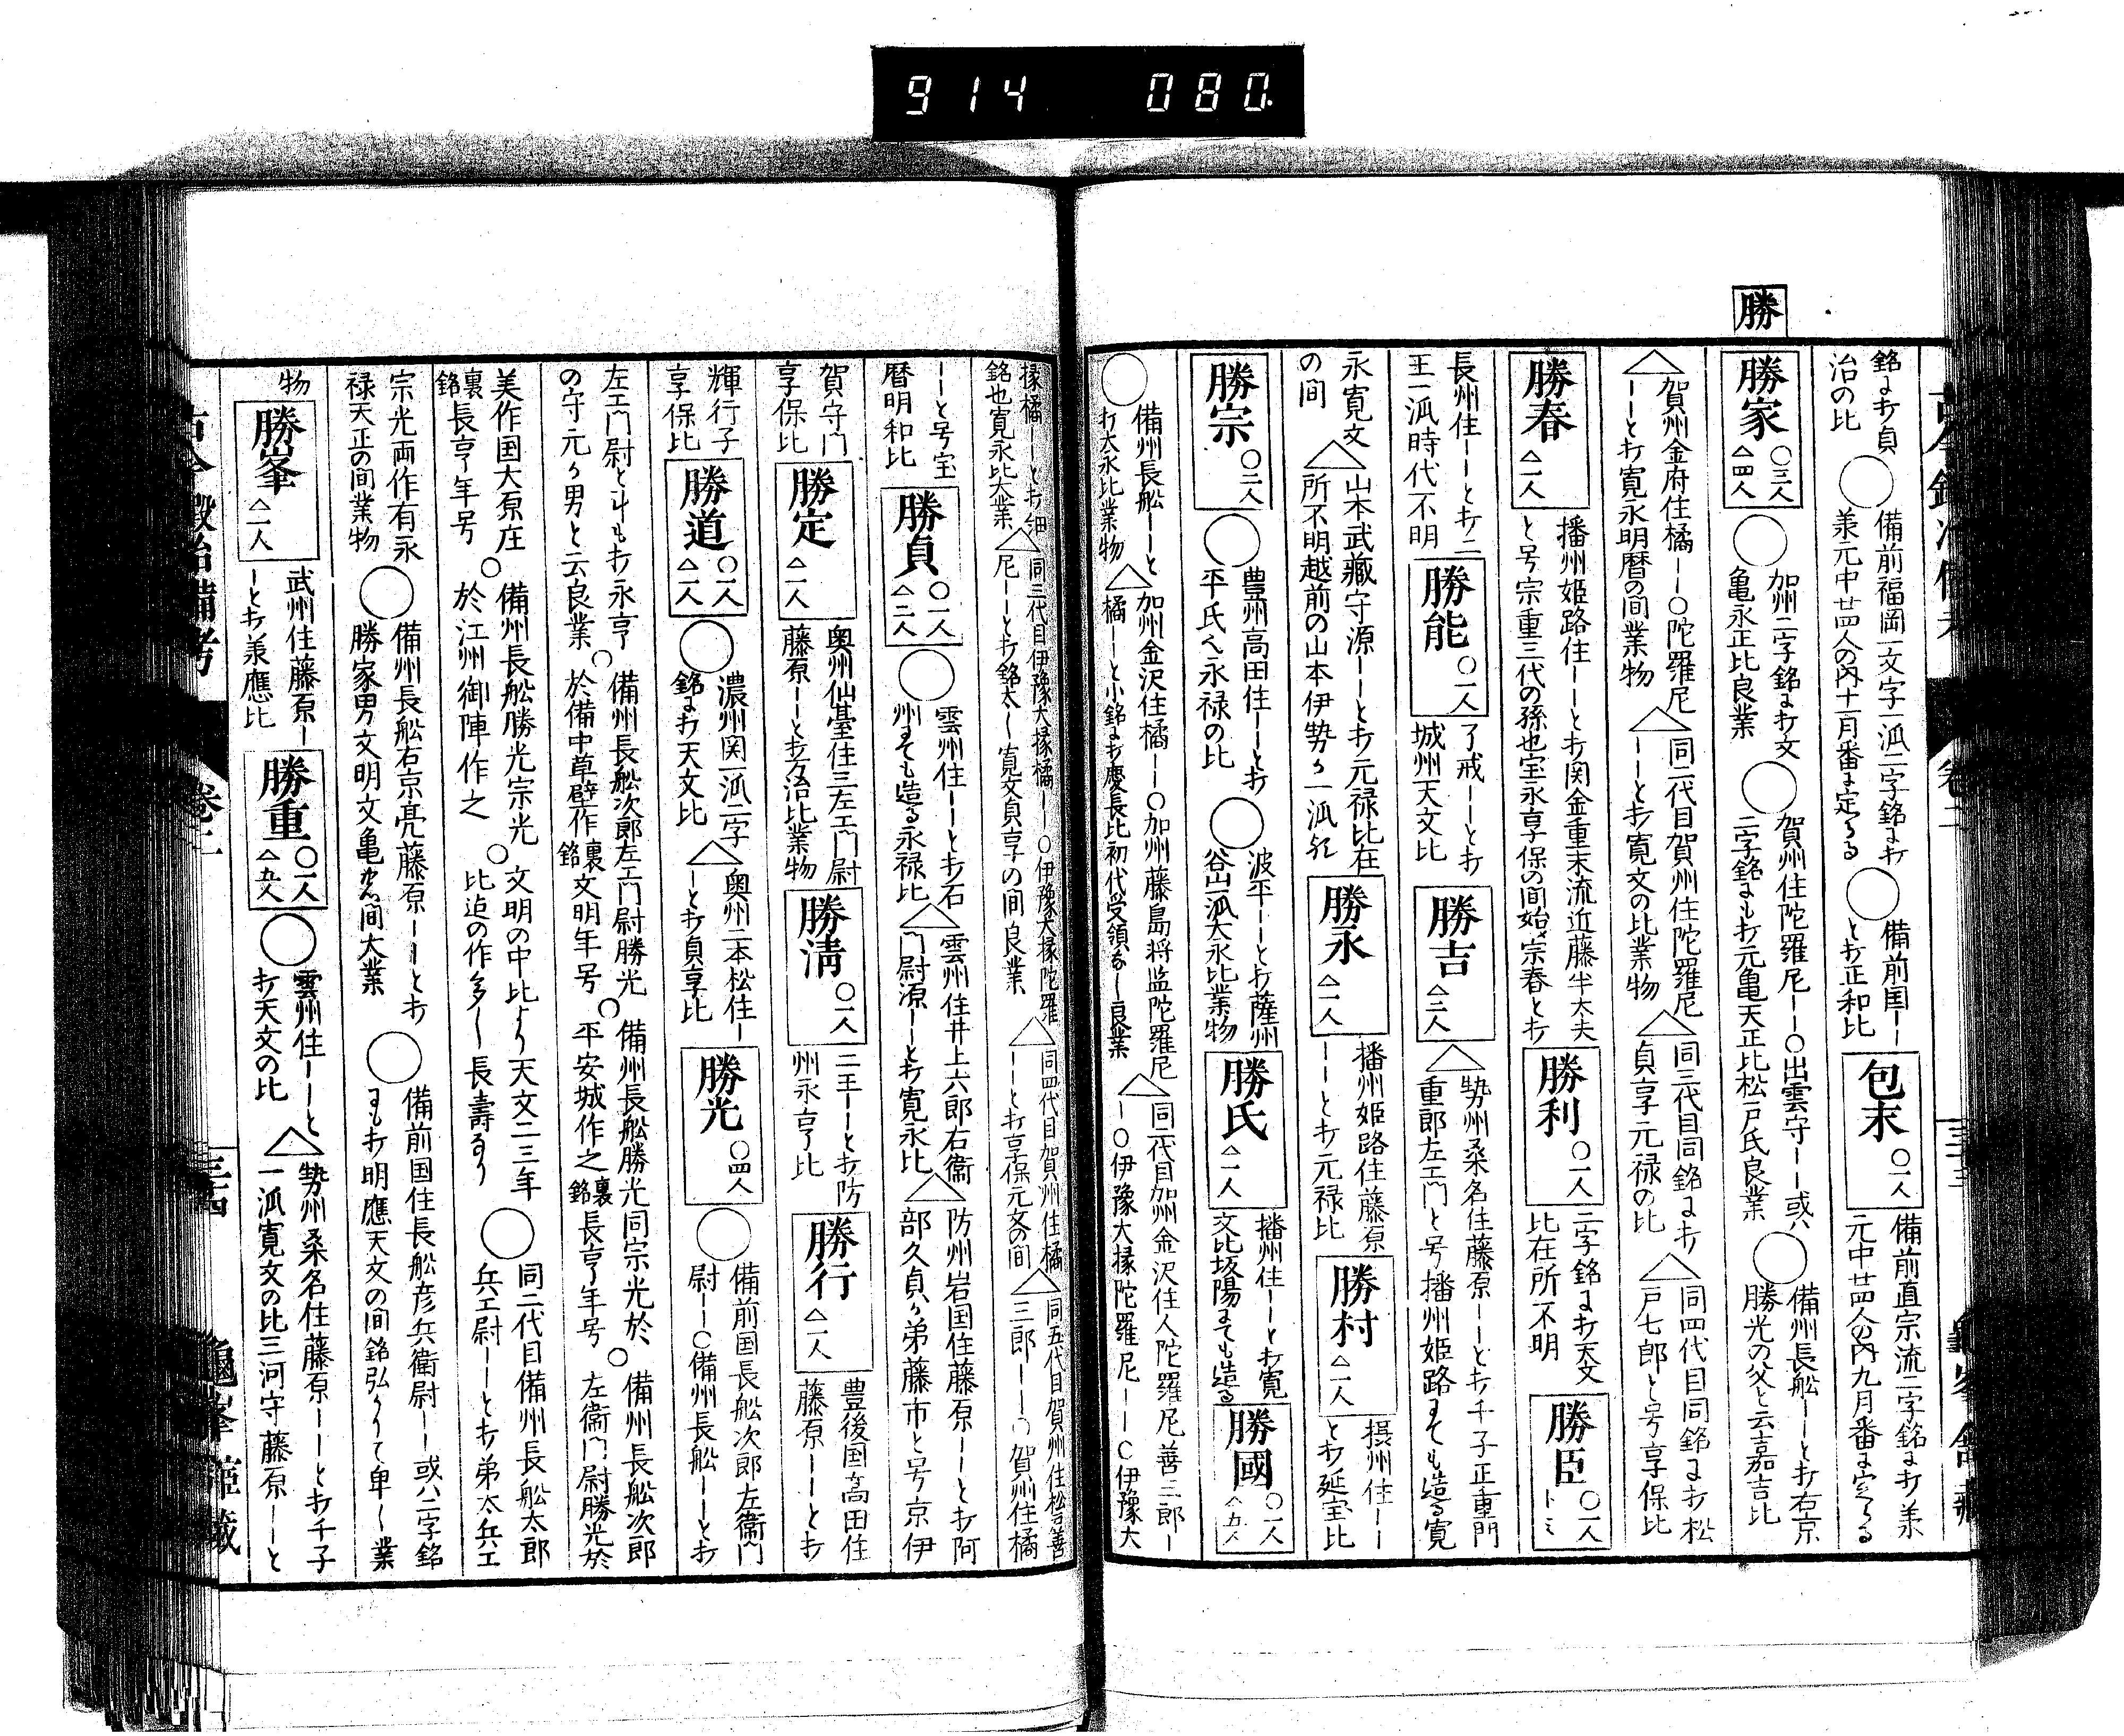 914 080
勝
銘ニ打貞
治の比
備前福岡一文字一派二字銘ニ打
兼元中廿四人の内十一月番ニ定る
備前国ー
と打正和比
包末 〇一人
備前直宗流二字銘ニ打兼
元中廿四人の内九月番ニ定る
勝家 〇三人 △四人
加州二字銘ニ打文
亀永正比良業
賀州住陀羅尼ー〇出雲守ー或ハ
二字銘ニも打元亀天正比松戸氏良業
備州長船ーと打右京
勝光の父と云嘉吉比
△賀州金府住橘ー〇陀羅尼
ーと打寛永明暦の間業物
△同二代目賀州住陀羅尼
ーと打寛文の比業物
△同三代目同銘ニ打
貞享元禄の比
△同四代目同銘ニ打松
戸七郎と号享保比
勝春 △一人
播州姫路住ーと打関金重末流近藤半太夫
と号宗重三代の孫也宝永享保の間始宗春と打
勝利 〇一人
二字銘ニ打天文
比在所不明
勝臣 〇一人
長州住ーと打二
王一派時代不明
勝能 〇一人
了戒ーと打
城州天文比
勝吉 △三人
△勢州桑名住藤原ーと打千子正重門
重郎左エ門と号播州姫路ニても造る寛
永寛文
の間
△山本武蔵守源ーと打元禄比在
所不明越前の山本伊勢々一派
勝永 △一人
播州姫路住藤原
ーと打元禄比
勝村 △一人
摂州住ー
と打延宝比
勝宗 〇二人
豊州高田住ーと打
平氏へ永禄の比
波平ーと打薩州
谷山派大永比業物
勝氏 △一人
播州住ーと打寛
文比坂陽ニても造る
勝國 〇一人 △五人
備州長船ーと
打大永比業物
△加州金沢住橘ー〇加州藤島将監陀羅尼
橘ーと小銘ニ打慶長比初代受領なし良業
△同二代目加州金沢住人陀羅尼善三郎ー
ー〇伊豫大掾陀羅尼ー〇伊豫大
掾橘ーと打細
銘也寛永比大業
△同三代目伊豫大掾橘ー〇伊豫大掾陀羅
尼ーと打銘太し寛文貞享の間良業
△同四代目賀州住橘
ーと打享保元文の間
△同五代目賀州住松戸善
三郎ー〇賀州住橘
ーと号宝
暦明和比
勝貞 〇一人 △二人
雲州住ーと打石
州ニても造る永禄比
△雲州住井上六郎右衛
門尉源ーと打寛永比
△防州岩国住藤原ーと打阿
部久貞々弟藤市と号京伊
賀守門
享保比
勝定 △一人
奥州仙臺住三左エ門尉
藤原ーと打万治比業物
勝清 〇一人
二王ーと打防
州永享比
勝行 △一人
豊後国高田住
藤原ーと打
輝行子
享保比
勝道 〇一人 △一人
濃州関一派二字
銘ニ打天文比
△奥州二本松住ー
ーと打貞享比
勝光 〇四人
備前国長船次郎左衛門
尉ー〇備州長船ーと打
左エ門尉と斗も打永享
の守元々男と云良業
〇備州長船次郎左エ門尉勝光
於備中草壁作裏銘文明年号
〇備州長船勝光同宗光於
平安城作之裏銘長享年号
〇備州長船次郎
左衛門尉勝光於
美作国大原庄
裏銘長享年号
〇備州長船勝光宗光
於江州御陣作之
〇文明の中比より天文二三年
比迄の作多し長壽なり
同二代目備州長船太郎
兵エ尉ーと打弟太兵エ
宗光両作有永
禄天正の間業物
備州長船右京亮藤原ーと打
勝家男文明文亀の間大業
備前国住長船彦兵衛尉ー或ハ二字銘
ニも打明應天文の間銘弘クして早し業
物
勝峯 △一人
武州住藤原ー
ーと打兼應比
勝重 〇一人 △五人
雲州住ーと
打天文の比
△勢州桑名住藤原ーと打千子
一派寛文の比三河守藤原ーと
古今鍛冶備考 卷二 三十四 龜峯蔵